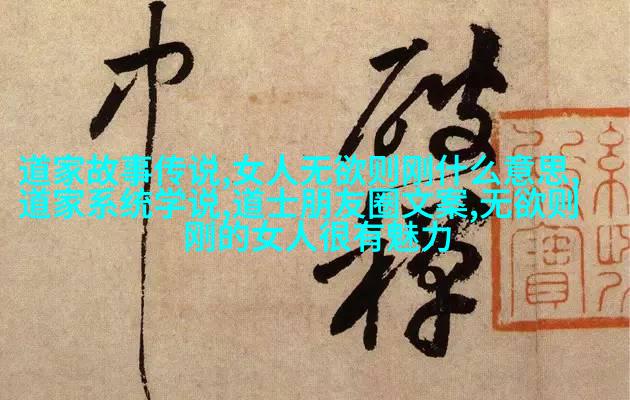 道家故事传说,女人无欲则刚什么意思,
道家系统学说,道士朋友圈文案,无欲则
刚的女人很有魅力
破